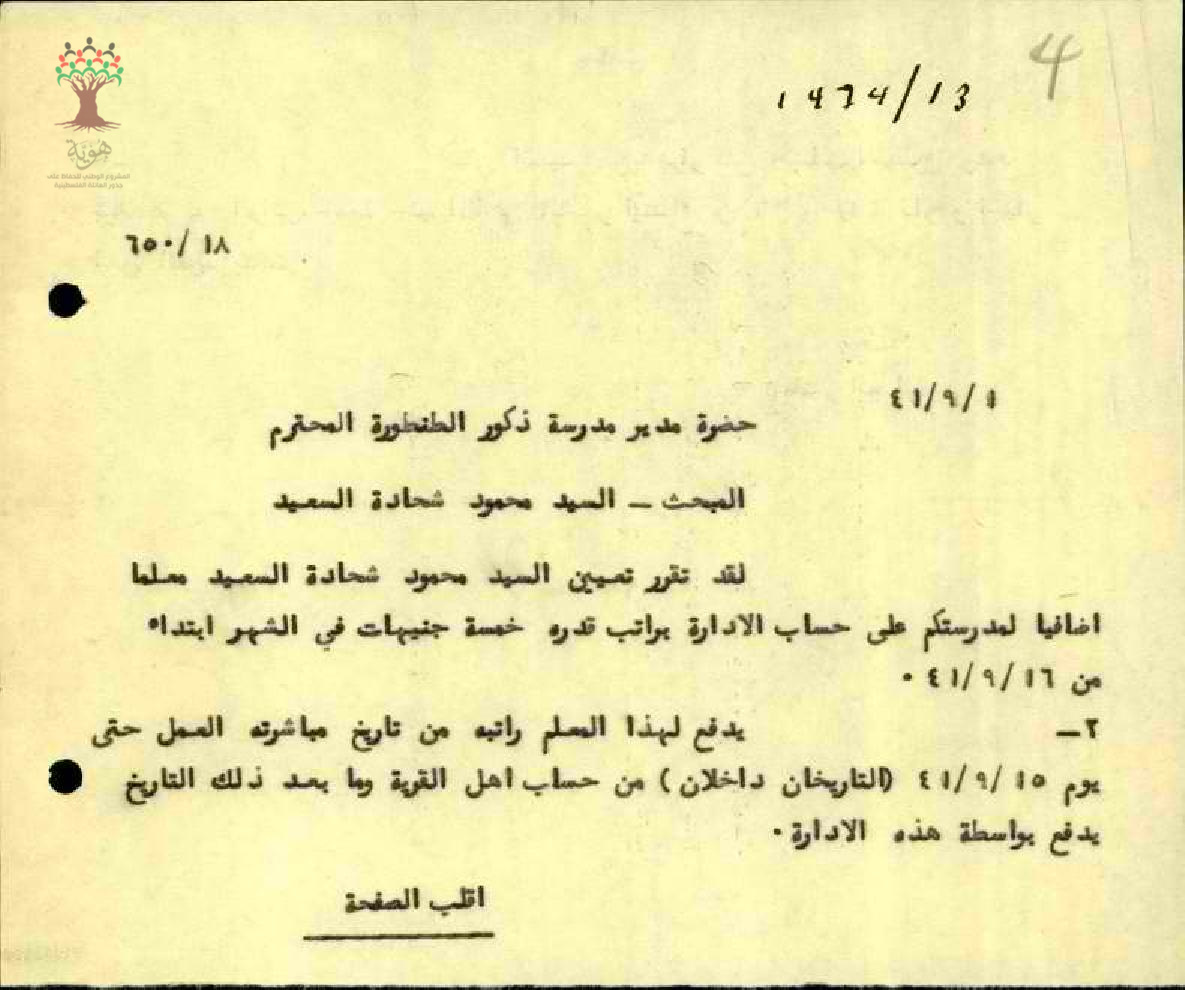 4
1474/13
هوية
المشروع الوطني للحفاظ على
جذور العائلة الفلسطينية
٦٥٠/١٨
٤١/٩/١
حضرة مدير مدرسة ذكور الطنطورة المحترم
المبحث – السيد محمود شحادة السعيد
لقد تقرر تعيين السيد محمود شحادة السعيد معلما
اضافيا لمدرستكم على حساب الادارة براتب قدره خمسة جنيهات في الشهر ابتداء
من ٤١/٩/١٦ .
٢– يدفع لهذا المعلم راتبه من تاريخ مباشرته العمل حتى
يوم ٤١/٩/١٥ (التاريخان داخلان) من حساب اهل القرية وما بعد ذلك التاريخ
يدفع بواسطة هذه الادارة .
اقلب الصفحة